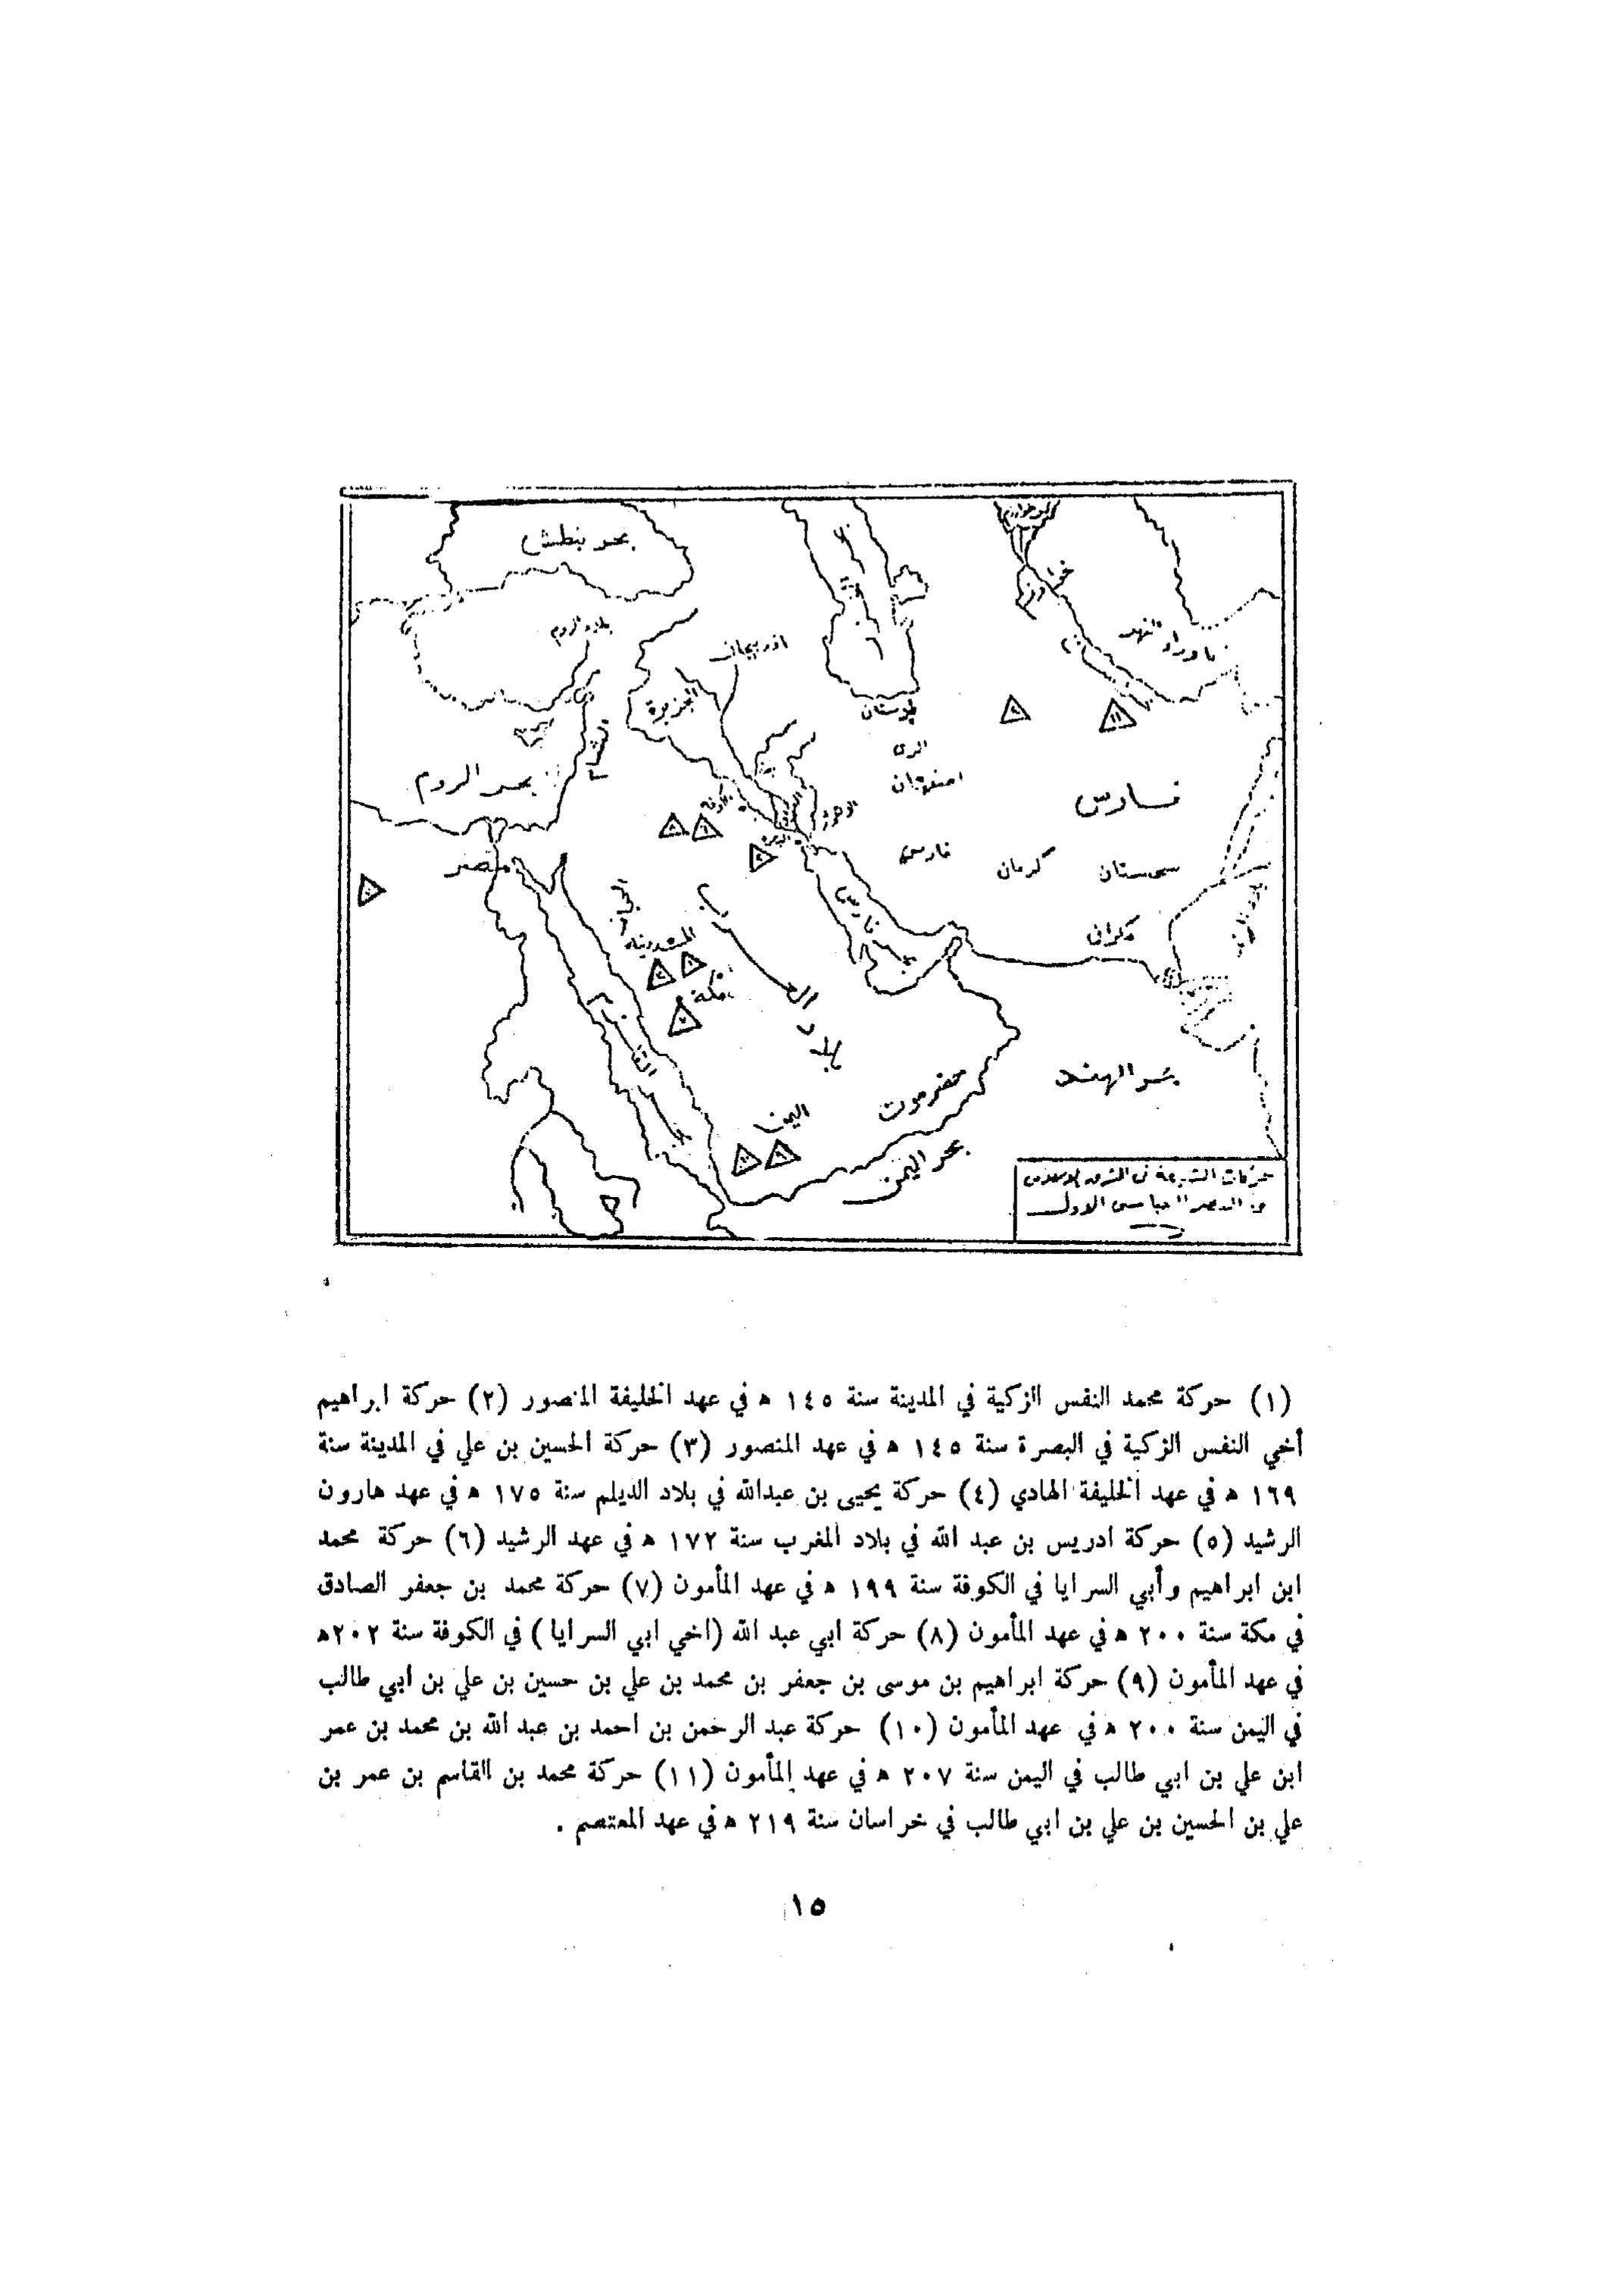 بحر بنطش
بلاد الروم
اذربيجان
الجزيرة
ما وراء النهر
الري
اصفهان
بحر الروم
فارس
مصر
فارس
كرمان
سجستان
مكران
المدينة
مكة
بلاد
بحر الهند
حضرموت
اليمن
بحر اليمن
حركات الشيعة في الشرق الاسلامي
في العصر العباسي الاول
(١) حركة محمد النفس الزكية في المدينة سنة ١٤٥ ه في عهد الخليفة المنصور (٢) حركة ابراهيم
أخي النفس الزكية في البصرة سنة ١٤٥ ه في عهد المنصور (٣) حركة الحسين بن علي في المدينة سنة
١٦٩ ه في عهد الخليفة الهادي (٤) حركة يحيى بن عبدالله في بلاد الديلم سنة ١٧٥ ه في عهد هارون
الرشيد (٥) حركة ادريس بن عبد الله في بلاد المغرب سنة ١٧٢ ه في عهد الرشيد (٦) حركة محمد
ابن ابراهيم وأبي السرايا في الكوفة سنة ١٩٩ ه في عهد المأمون (٧) حركة محمد بن جعفر الصادق
في مكة سنة ٢٠٠ ه في عهد المأمون (٨) حركة ابي عبد الله (اخي ابي السرايا) في الكوفة سنة ٢٠٢ه
في عهد المأمون (٩) حركة ابراهيم بن موسى بن جعفر بن محمد بن علي بن حسين بن علي بن ابي طالب
في اليمن سنة ٢٠٠ ه في عهد المأمون (١٠) حركة عبد الرحمن بن احمد بن عبد الله بن محمد بن عمر
ابن علي بن ابي طالب في اليمن سنة ٢٠٧ ه في عهد المأمون (١١) حركة محمد بن القاسم بن عمر بن
علي بن الحسين بن علي بن ابي طالب في خراسان سنة ٢١٩ ه في عهد المعتصم .
١٥